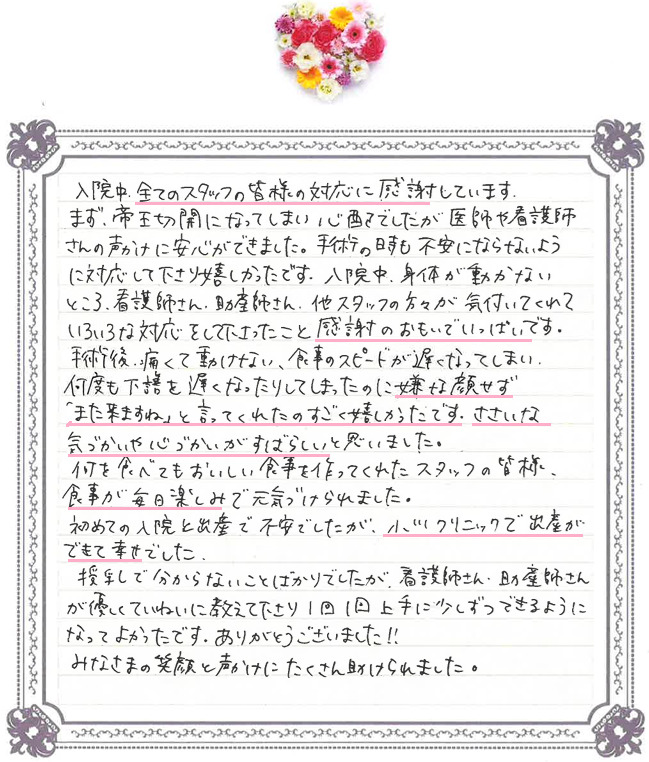 入院中、全てのスタッフの皆様の対応に感謝しています。
まず、帝王切開になってしまい心配でしたが医師や看護師
さんの声かけに安心ができました。手術の時も不安にならないよう
に対応して下さり嬉しかったです。入院中、身体が動かない
ところ、看護師さん、助産師さん、他スタッフの方々が気付いてくれて
いろいろな対応をして下さったこと感謝のおもいでいっぱいです。
手術後、痛くて動けない、食事のスピードが遅くなってしまい、
何度も下膳を遅くなったりしてしまったのに嫌な顔せず
「また来ますね」と言ってくれたのすごく嬉しかったです。ささいな
気づかいや心づかいがすばらしいと思いました。
何を食べてもおいしい食事を作ってくれたスタッフの皆様、
食事が毎日楽しみで元気づけられました。
初めての入院と出産で不安でしたが、小川クリニックで出産が
できて幸せでした。
授乳して分からないことばかりでしたが、看護師さん、助産師さん
が優しくていねいに教えて下さり1回1回上手に少しずつできるように
なってよかったです。ありがとうございました!!
みなさまの笑顔と声かけにたくさん助けられました。